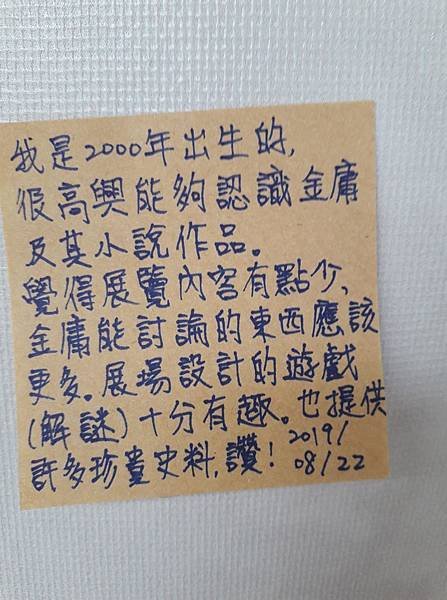 我是2000年出生的,
很高興能夠認識金庸
及其小說作品。
覺得展覽內容有點少、
金庸能討論的東西應該
更多。展場設計的遊戲
(解謎)十分有趣。也提供
許多珍臺史料,讚!
2019/
08/22